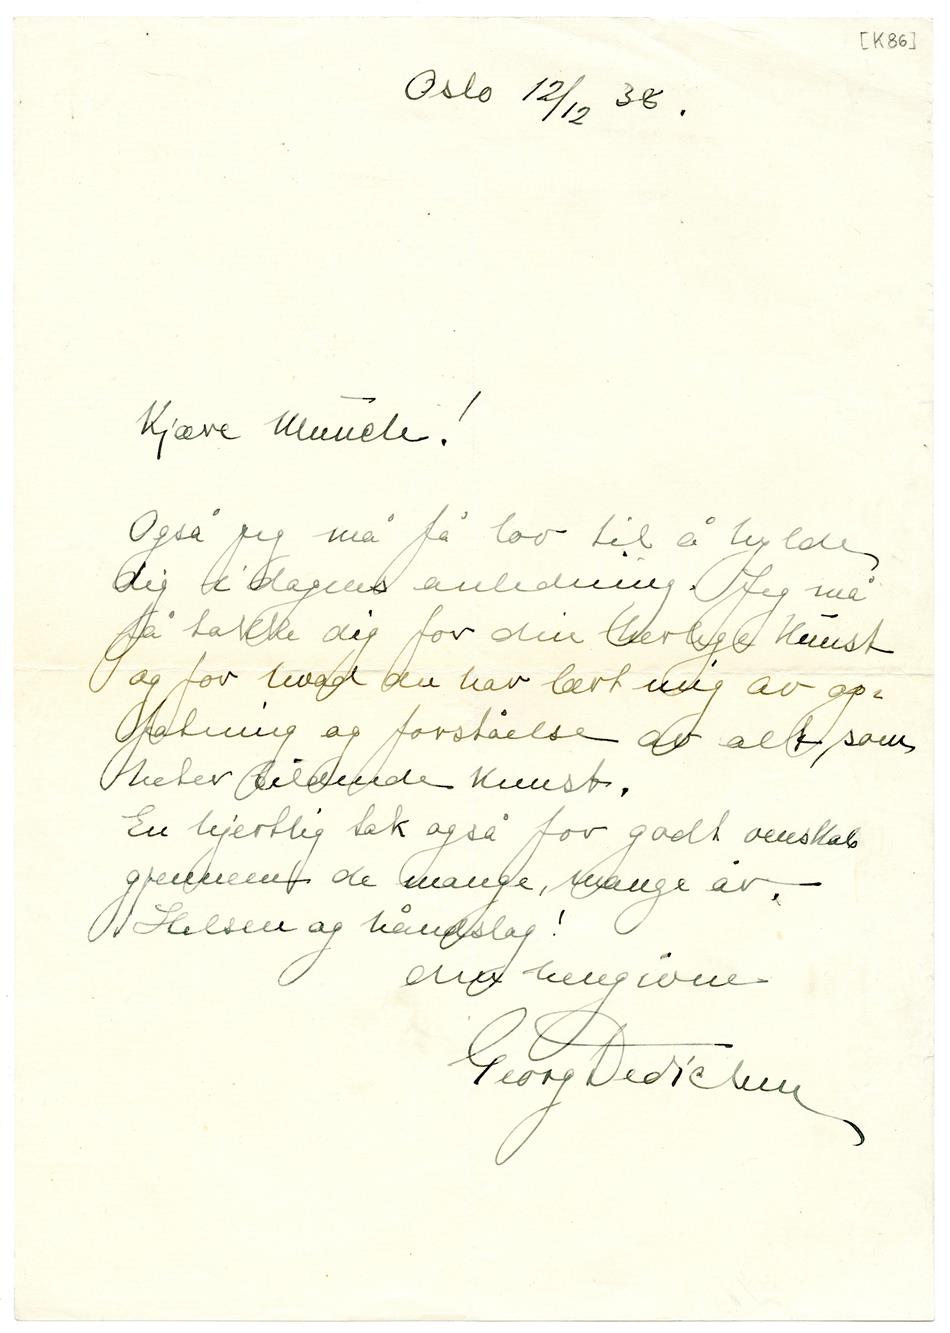 [K86]
Oslo 12/12 38.
Kjære Munch!
Også jeg må få lov til å hylde
dig i dagens anledning. Jeg må
få takke dig for din herlige Kunst
og for hvad du har lært mig av op=
fatning og forståelse av alt, som
heter bildende Kunst.
En hjertlig tak også for godt venskab
gjennem de mange, mange år. –
Hilsen og håndslag!
din hengivne
Georg Dedichen